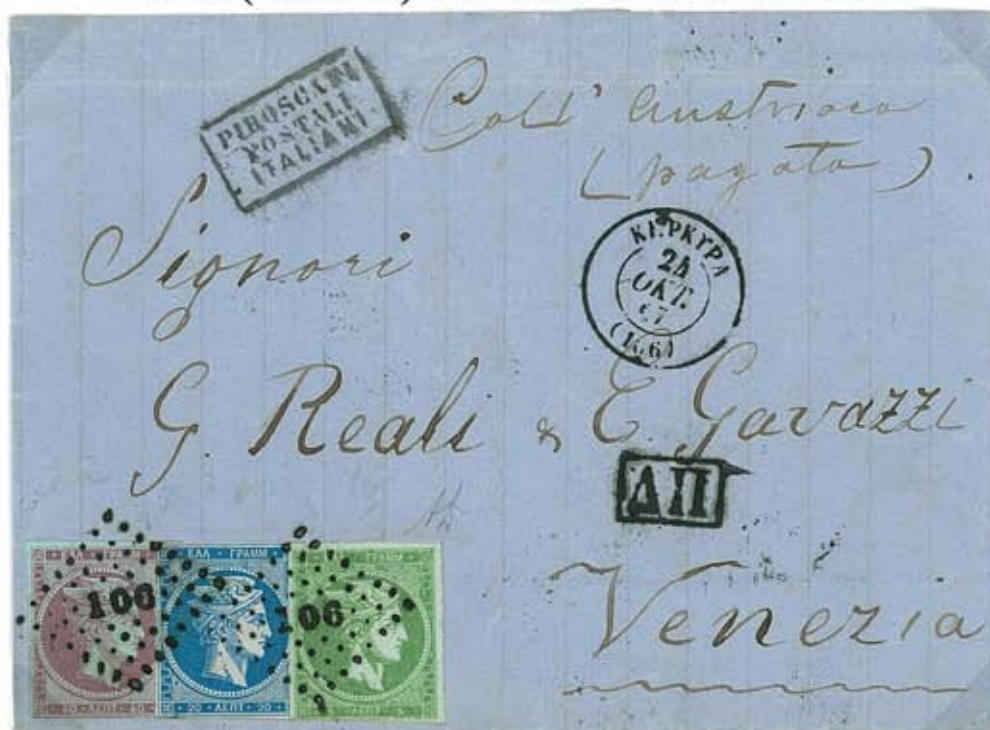 PIROSCAFI
POSTALI
ITALIANI
Coll' Austriaco
(pagato)
Signori
ΚΕΡΚΥΡΑ
24
ΟΚΤ.
67
(106)
G. Reali & E. Gavazzi
ΔΠ
Venezia
106
06
ΕΛΛ ΓΡΑΜΜ
ΓΡΑΜΜ
40 ΛΕΠΤ 40
20 ΛΕΠΤ 20
ΛΕΠΤ